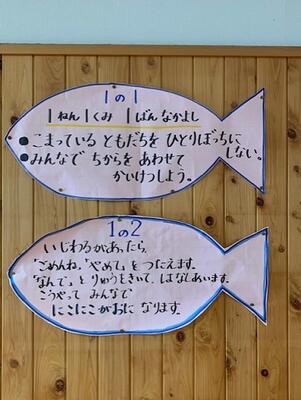 1の1
1ねん1くみ 1ばんなかよし
●こまっている ともだちを ひとりぼっちに
しない。
●みんなで ちからを あわせて
かいけつしよう。
1の2
いじわるがあったら、
「ごめんね」「やめて」を つたえます。
「なんで」と りゆうをきいて、はなしあいます。
こうやって みんなで
にこにこがおに なります。